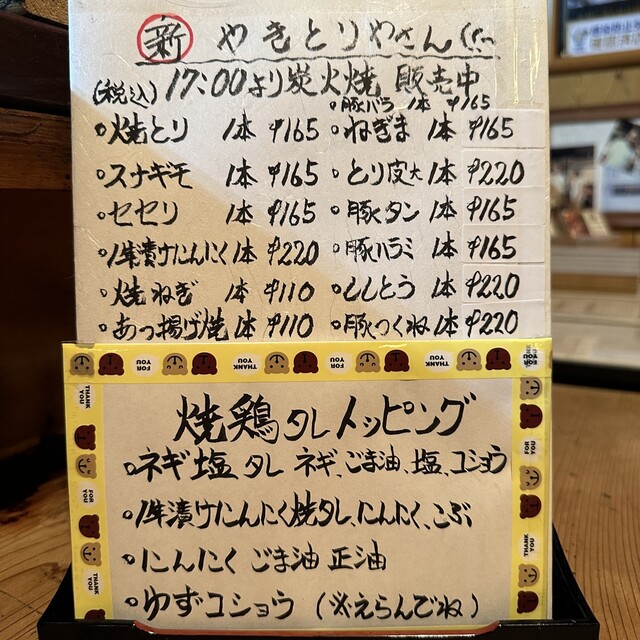 新 やきとりやさん
(税込) 17:00より炭火焼 販売中
。豚バラ 1本 ¥165
。焼とり 1本 ¥165 。ねぎま 1本 ¥165
。スナギモ 1本 ¥165 。とり皮大 1本 ¥220
。セセリ 1本 ¥165 。豚タン 1本 ¥165
。1年漬けにんにく 1本 ¥220 。豚ハラミ 1本 ¥165
。焼ねぎ 1本 ¥110 。ししとう 1本 ¥220
。あつ揚げ焼 1本 ¥110 。豚つくね 1本 ¥220
THANK YOU
FOR YOU
焼鶏タレトッピング
。ネギ塩タレ ネギ、ごま油、塩、コショウ
。1年漬けにんにく焼タレ、にんにく、こぶ
。にんにく ごま油 正油
。ゆずコショウ (※えらんでね)